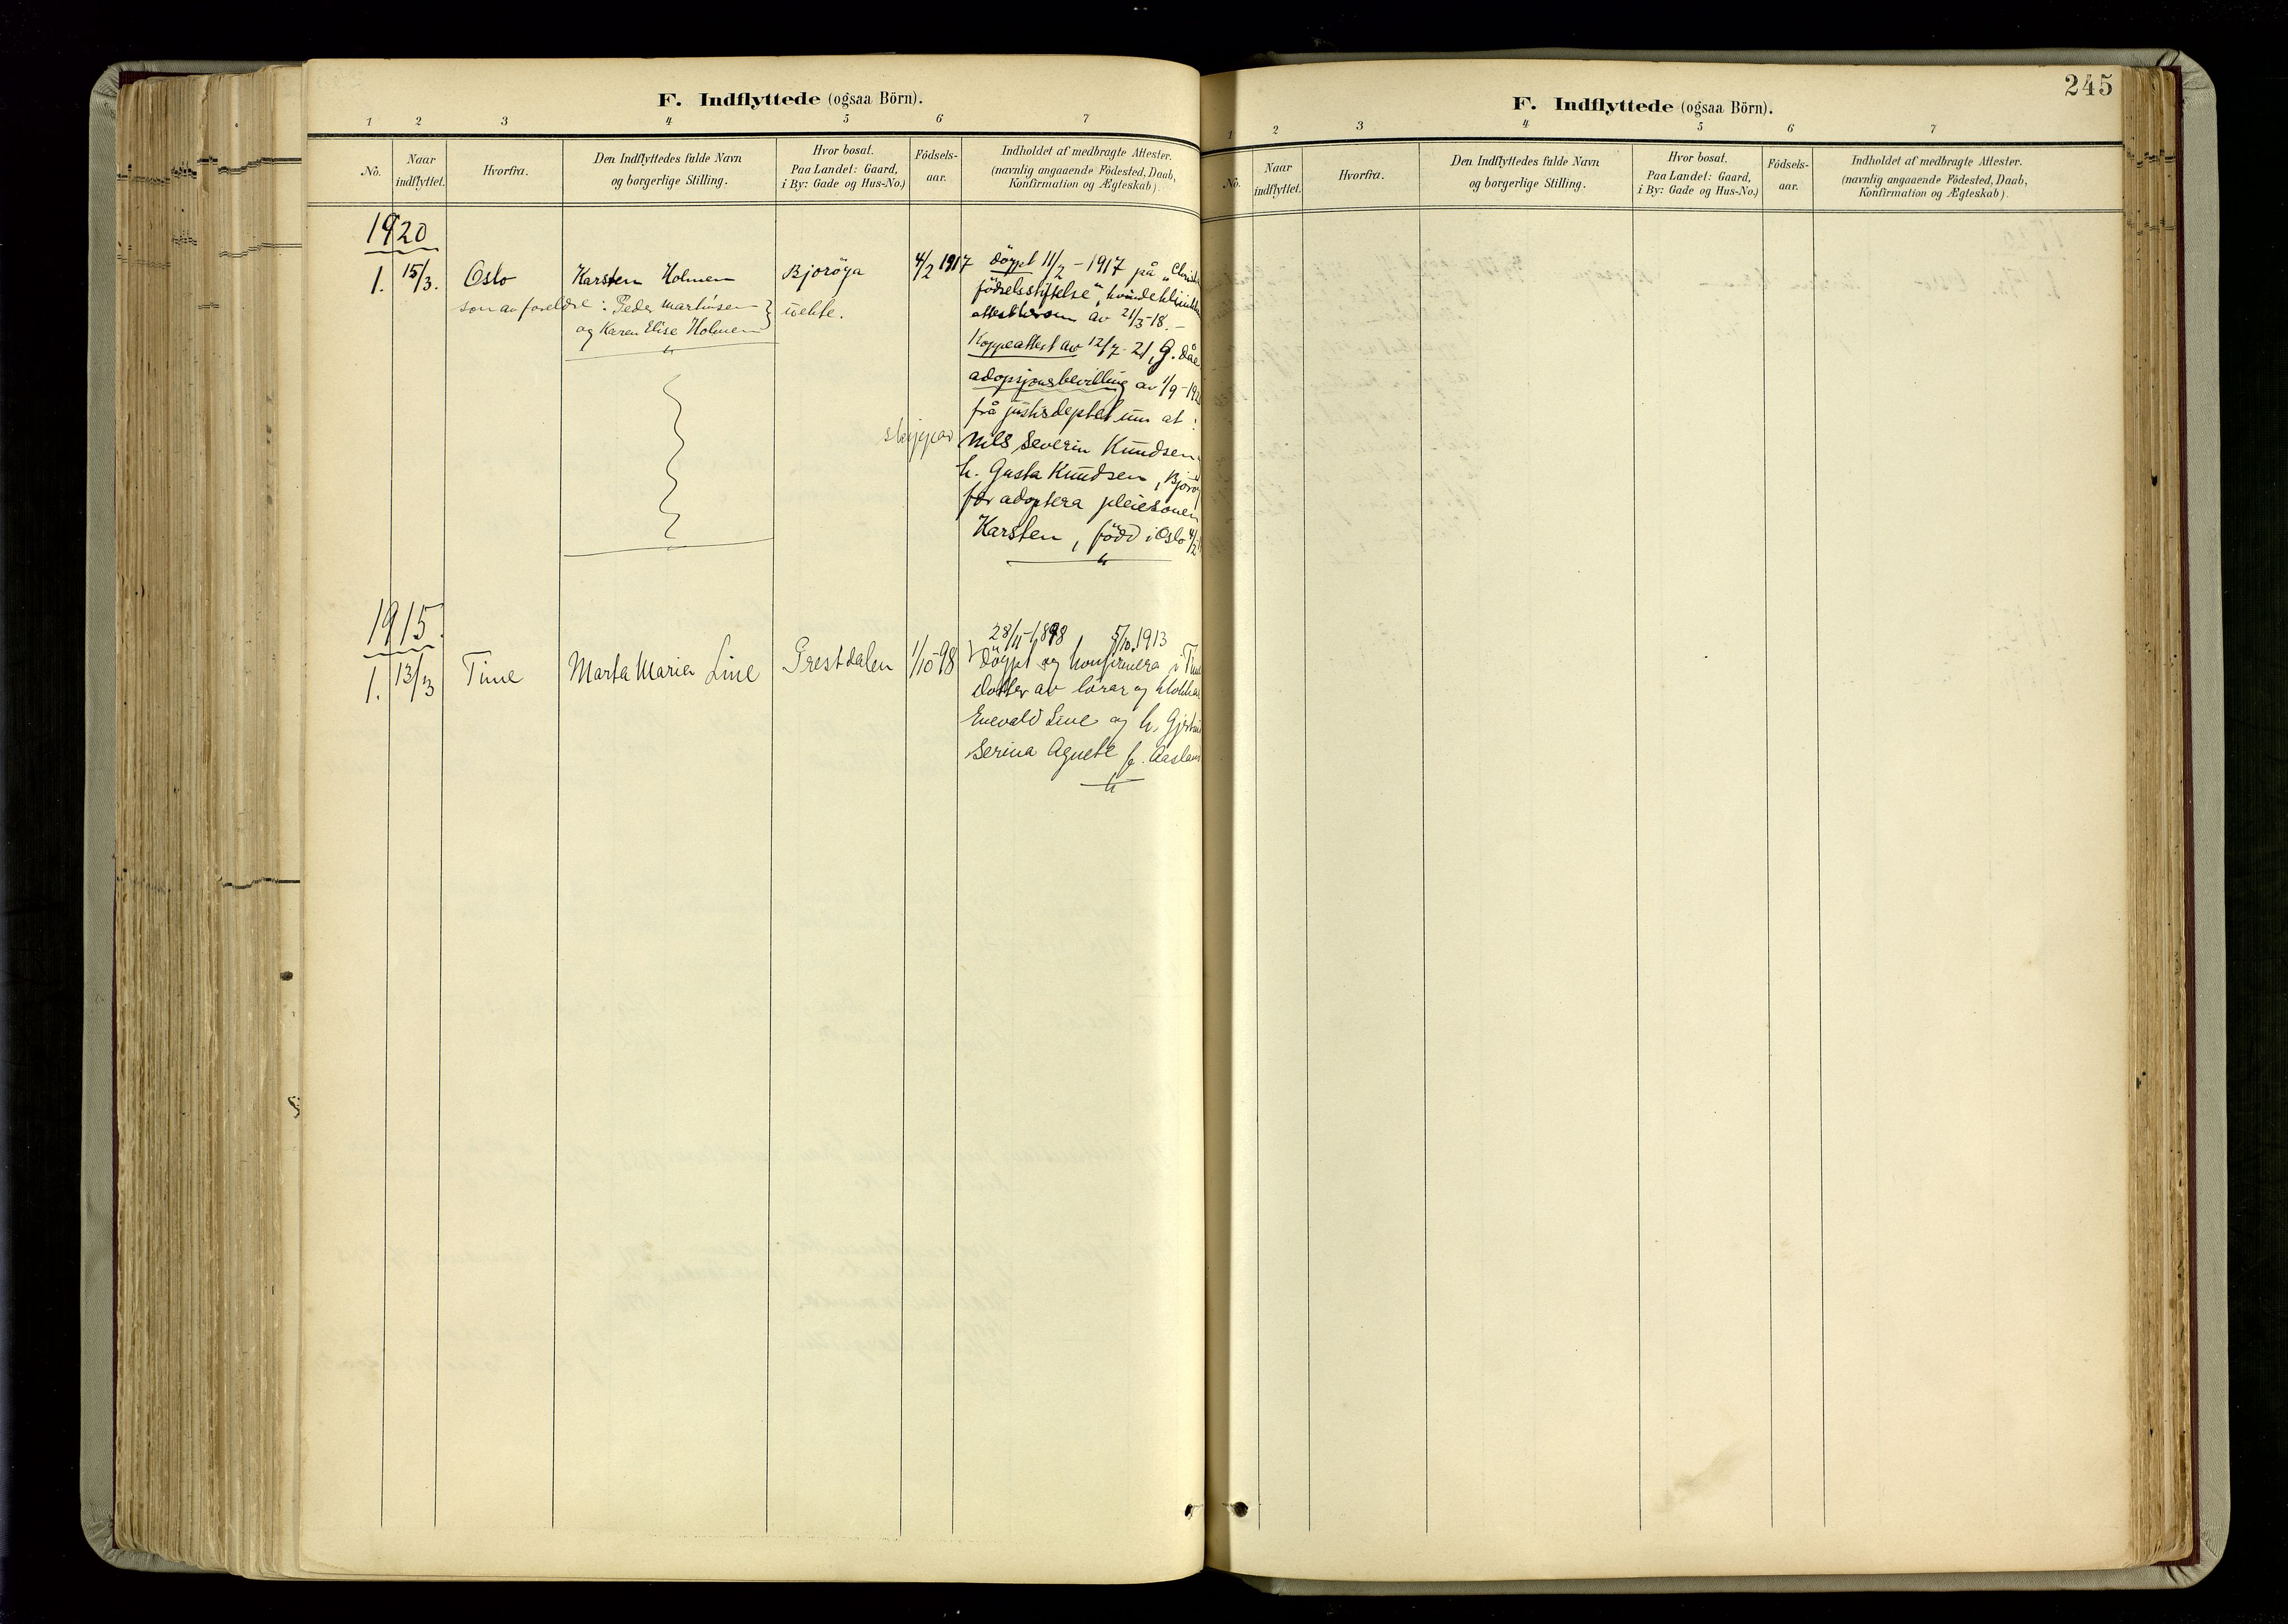 F. Indflyttede (ogsaa Börn).
1 2 3 4 5 6 7
No. Naar indflyttet. Hvorfra. Den Indflyttedes fulde Navn og borgerlige Stilling. Hvor bosat. Paa Landet: Gaard, i By: Gade og Hus-No.) Födsels-aar. Indholdet af medbragte Attester. (navnlig angaaende Födested, Daab, Konfirmation og Ægteskab).
1920
1. 15/3. Oslo Karsten Holmen Bjoröya 4/2 1917 döypt 11/2 - 1917 på „Christi
son av foreldre: Peder Martinsen födselsstiftelse",
og Karen Elise Holmen av 21/3-18. -
Koppeattest av 12/7-21, G.
adopsjonsbevilling av 1/9-192
frå justisdeptet um at:
skippar Nils Severin Knudsen
h. Gusta Knudsen, Bjorö
før adoptera pleiesonen
Karsten, född i Oslo 4/2
1915.
28/11-1898 5/10.1913
1. 13/3 Time Marta Marie Line Prestdalen 1/10-98 Döypt og konfirmera i Time
Dotter av lärar og klokkar
Enevald Line og h. Gjertine
Serina Agnete f. Aasland
245
F. Indflyttede (ogsaa Börn).
1 2 3 4 5 6 7
No. Naar indflyttet. Hvorfra. Den Indflyttedes fulde Navn og borgerlige Stilling. Hvor bosat. Paa Landet: Gaard, i By: Gade og Hus-No.) Födsels-aar. Indholdet af medbragte Attester. (navnlig angaaende Födested, Daab, Konfirmation og Ægteskab).